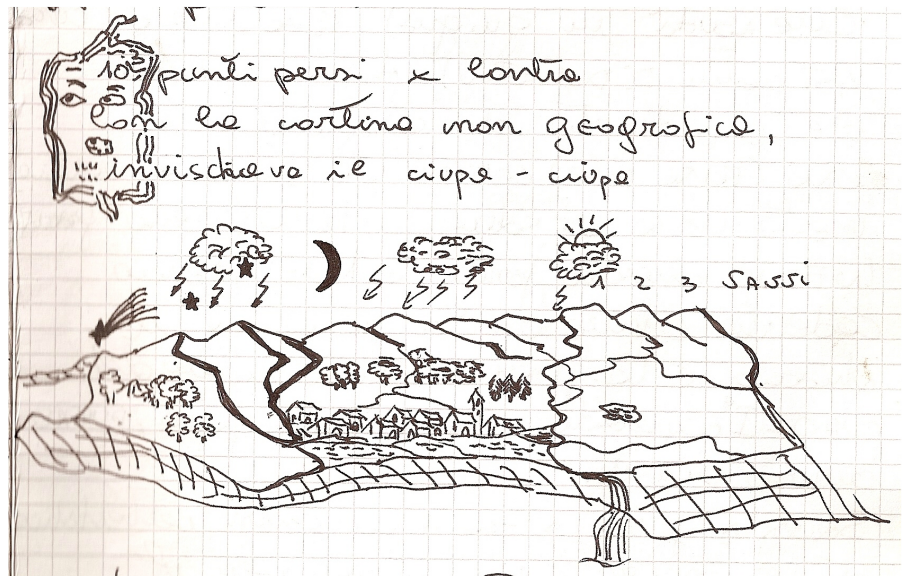 10 punti persi x
con la cartina non geografica,
invischiava il ciupa - ciupa
1 2 3 SASSI